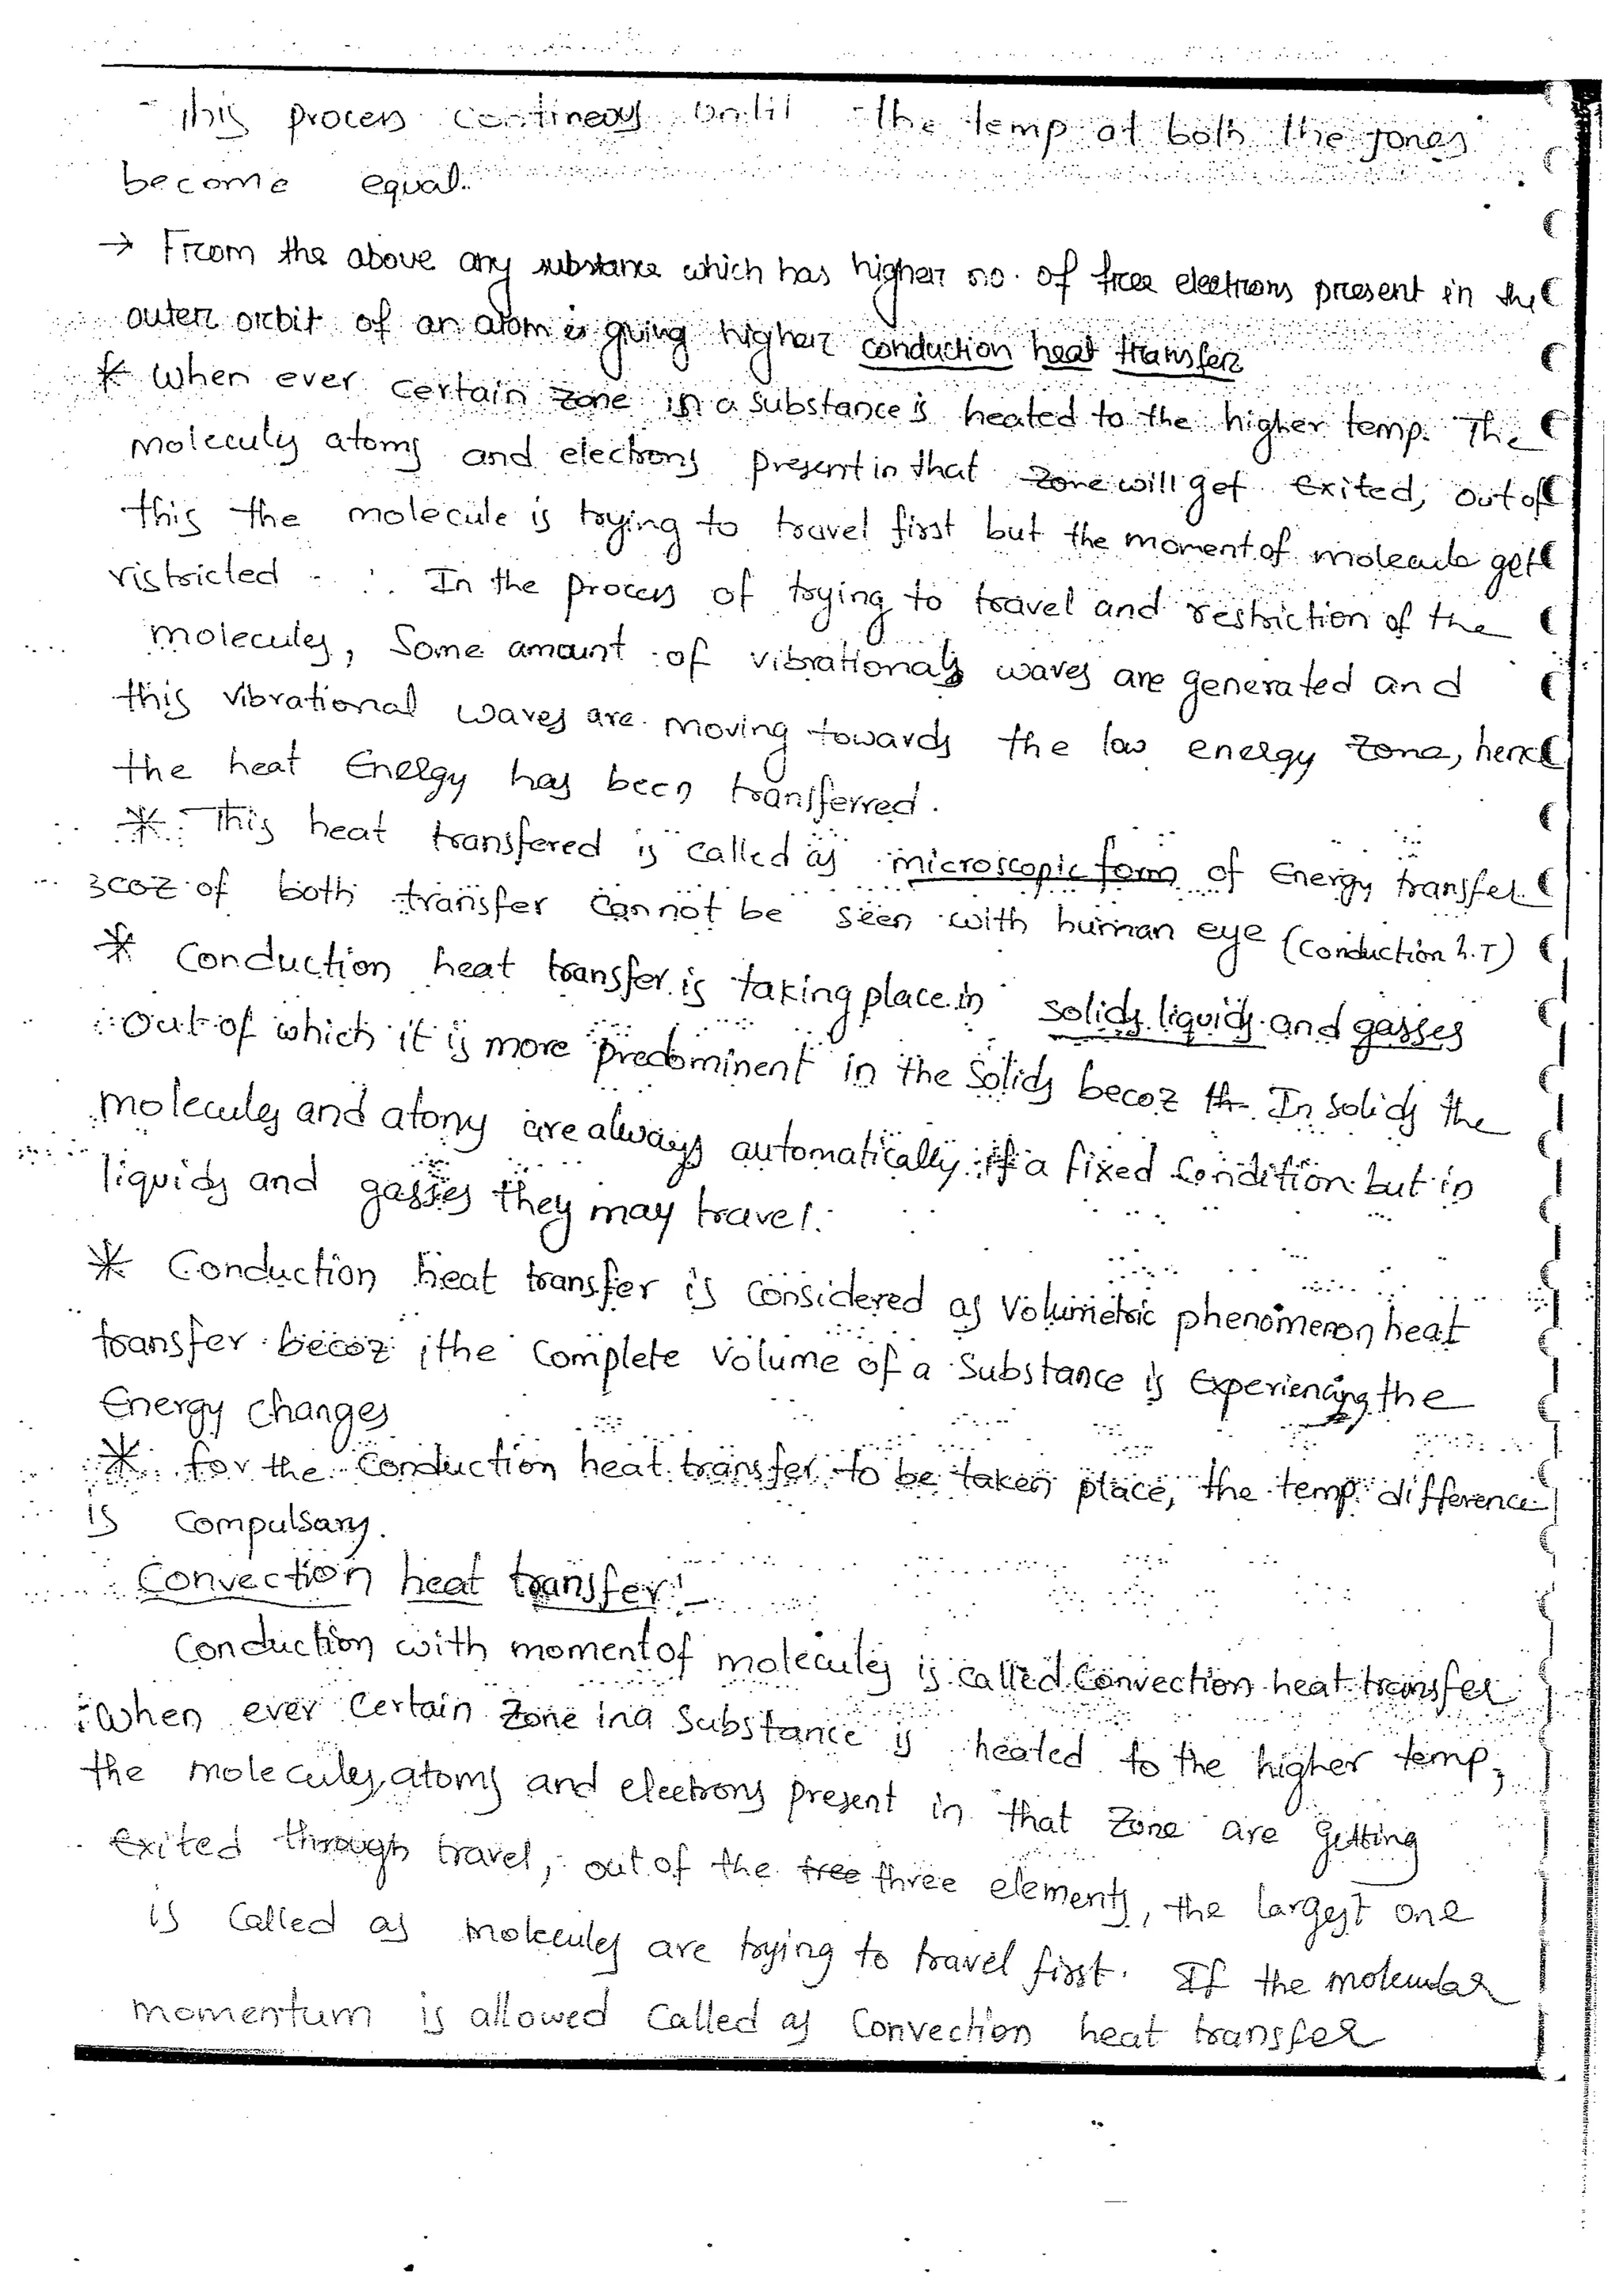 This process contineous until the temp at both the zones
become equal.
→ From the above any substance which has higher no. of free electrons present in the
outer orbit of an atom is giving higher conduction heat transfer
* When ever certain zone in a substance is heated to the higher temp. The
molecules atoms and electrons present in that zone will get exited, out of
this the molecule is trying to travel first but the moment of molecule gets
ristricted ∴ In the process of trying to travel and restriction of the
molecules, Some amount of vibrationals waves are generated and
this vibrational waves are moving towards the low energy zone, hence
the heat Energy has been transferred.
* This heat transfered is called as microscopic form of Energy transfer
becoz of both transfer cannot be seen with human eye (conduction h.T)
* Conduction heat transfer is taking place in solids liquids and gasses
out of which it is more predominent in the Solids becoz th In solids the
molecules and atoms are always automatically if a fixed condition but in
liquids and gasses they may travel.
* Conduction heat transfer is considered as Volumetric phenomenon heat
transfer becoz the Complete Volume of a Substance is Experiencing the
Energy changes
* for the Conduction heat transfer to be taken place, the temp difference
is Compulsary.
Convection heat transfer:-
Conduction with moment of molecules is called Convection heat transfer
When ever Certain zone in a Substance is heated to the higher temp,
the molecules, atoms and electrons present in that zone are getting
Exited through travel, out of the free three elements, the largest one
is Called as molecules are trying to travel first. If the molecular
momentum is allowed Called as Convection heat transfer